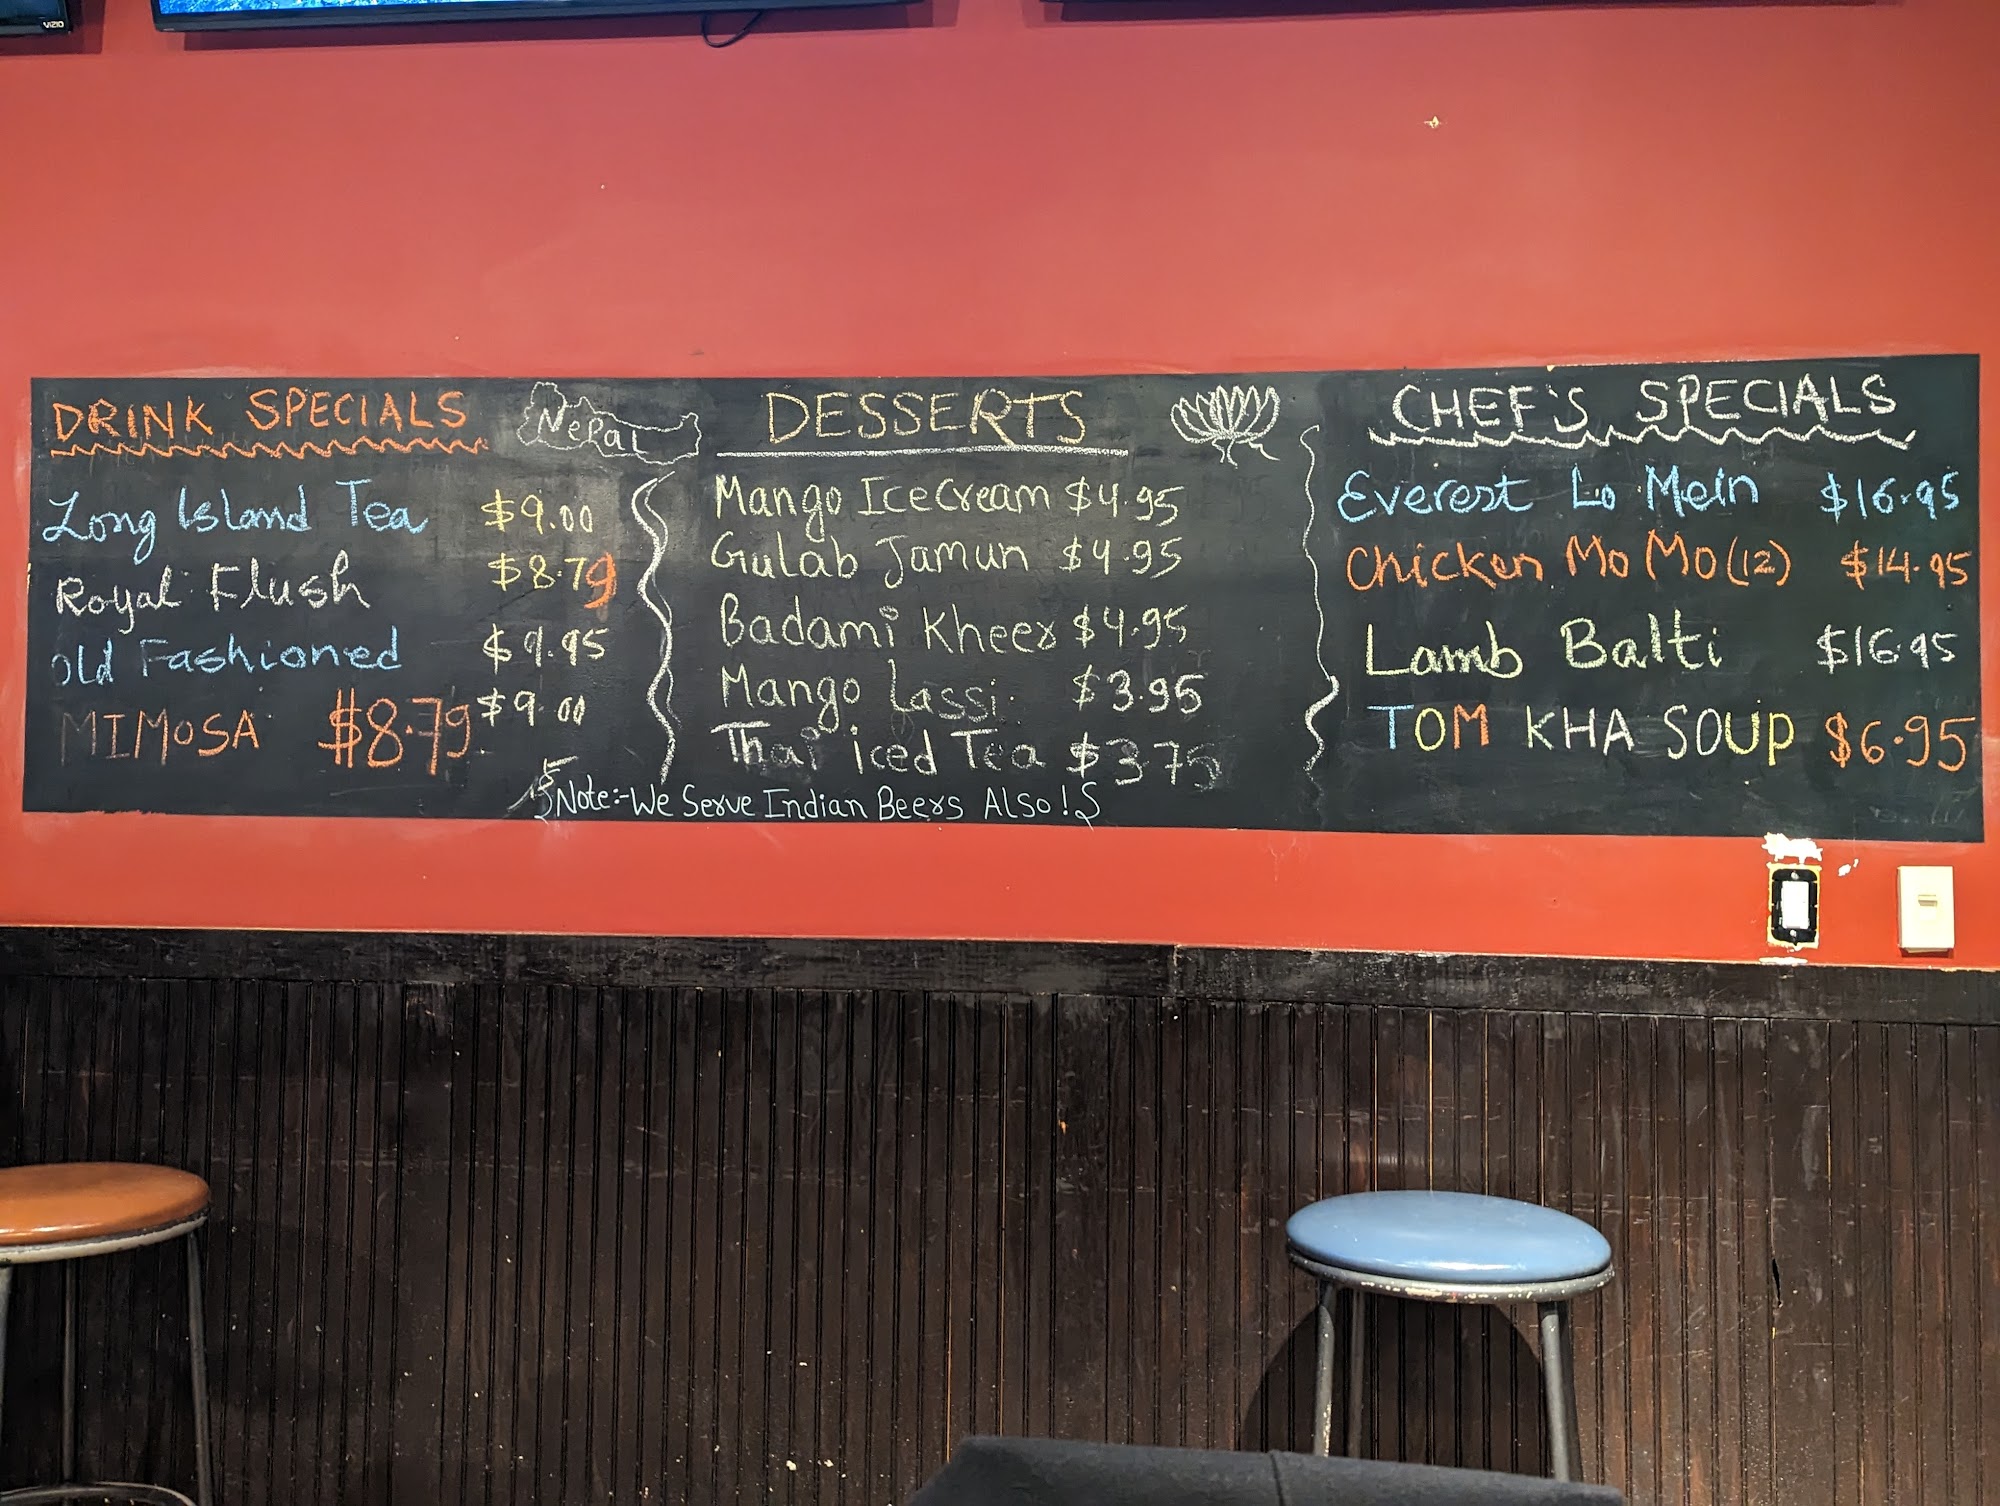 VIZIO
DRINK SPECIALS
Long Island Tea $9.00
Royal Flush $8.79
Old Fashioned $9.95
MIMOSA $8.79 $9.00
Nepal
DESSERTS
Mango Icecream $4.95
Gulab Jamun $4.95
Badami Kheer $4.95
Mango Lassi $3.95
Thai iced Tea $3.75
Note:-We Serve Indian Beers Also!
CHEF'S SPECIALS
Everest Lo Mein $16.95
Chicken Mo Mo (12) $14.95
Lamb Balti $16.95
TOM KHA SOUP $6.95